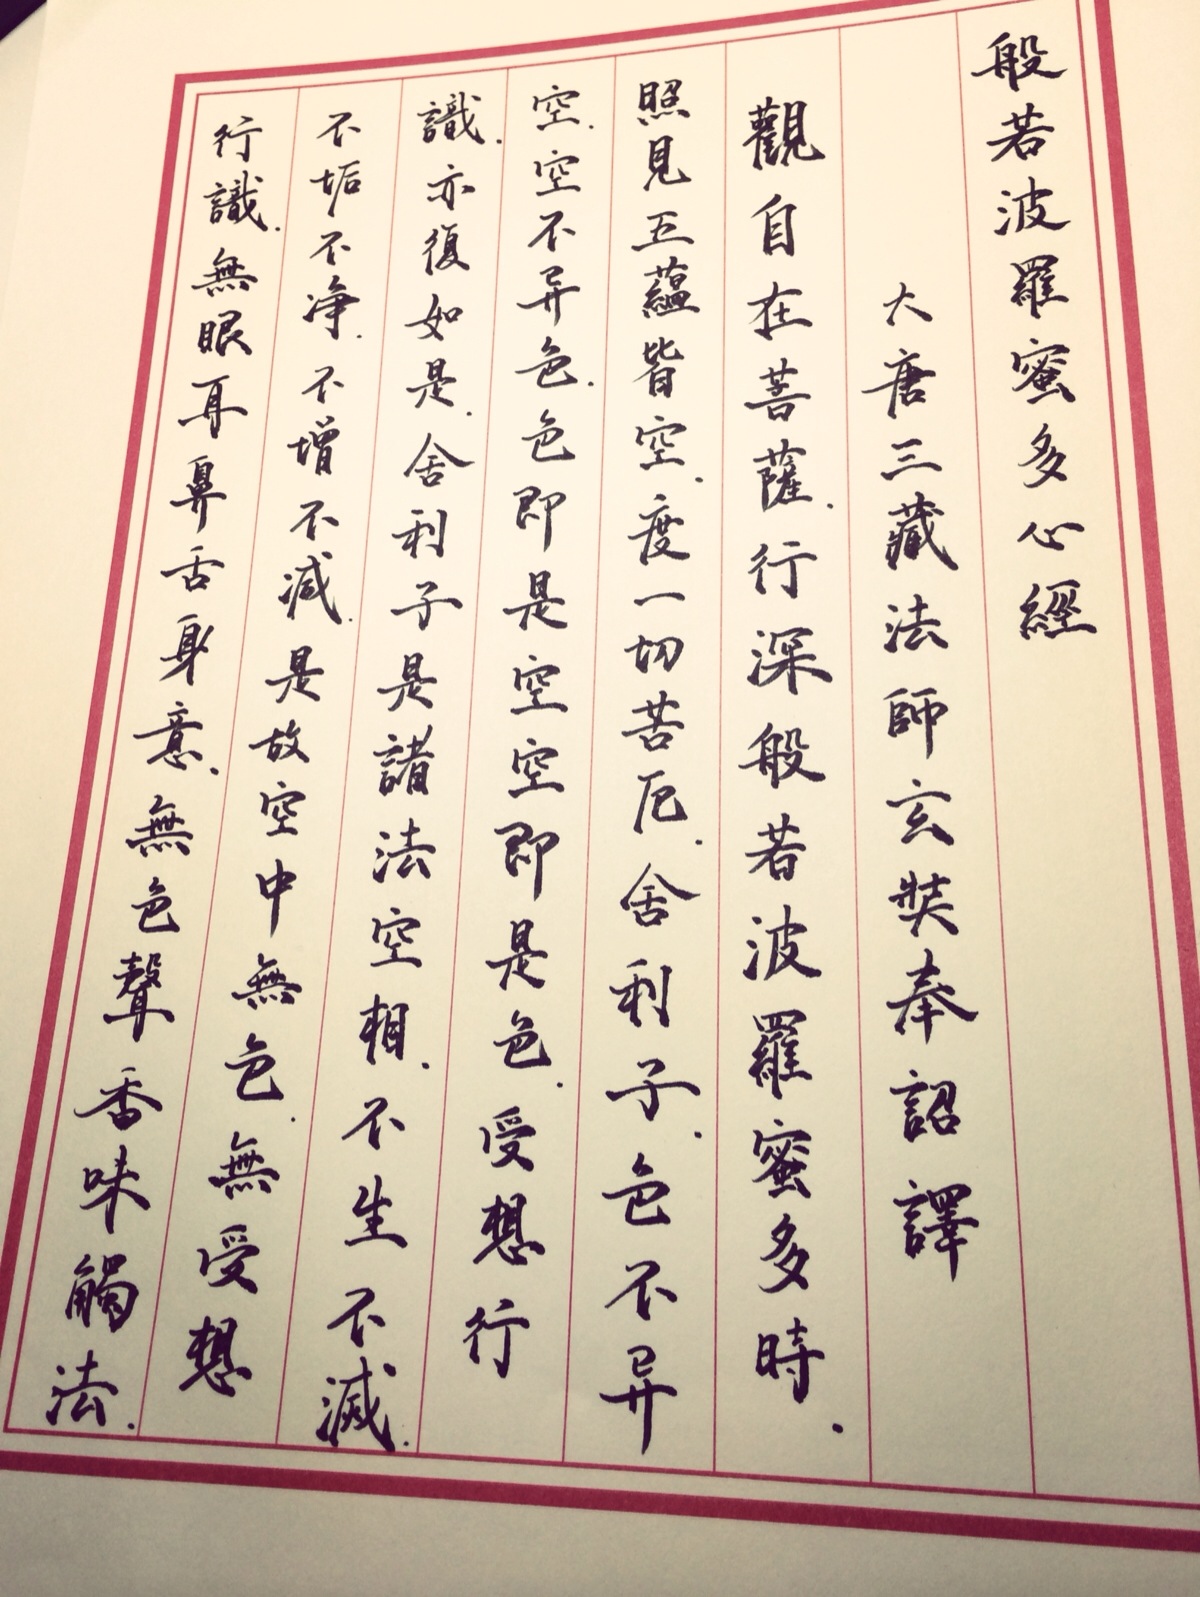 般若波羅蜜多心經
大唐三藏法師玄奘奉詔譯
觀自在菩薩.行深般若波羅蜜多時.
照見五蘊皆空.度一切苦厄.舍利子.色不异
空.空不异色.色即是空空即是色.受想行
識.亦復如是.舍利子是諸法空相.不生不滅.
不垢不净.不增不减.是故空中無色.無受想
行識.無眼耳鼻舌身意.無色聲香味觸法.